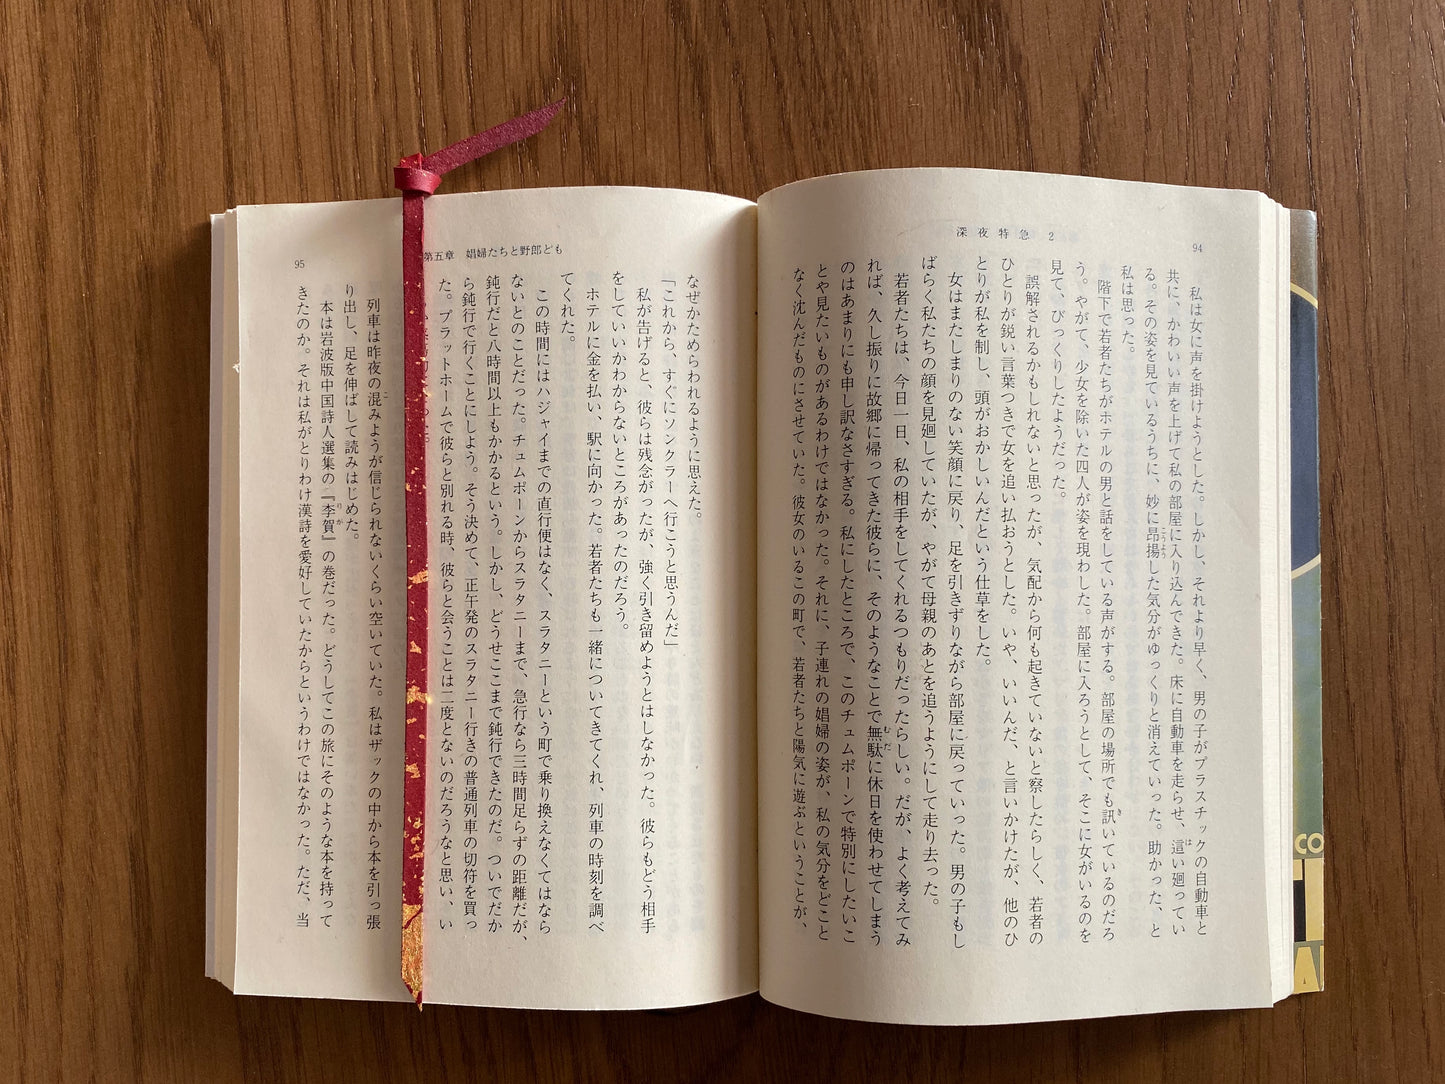 94
深夜特急 2
私は女に声を掛けようとした。しかし、それより早く、男の子がプラスチックの自動車と
共に、かわいい声を上げて私の部屋に入り込んできた。床に自動車を走らせ、這い廻ってい
は
る。その姿を見ているうちに、妙に昂揚した気分がゆっくりと消えていった。助かった、と
こうよう
私は思った。
階下で若者たちがホテルの男と話をしている声がする。部屋の場所でも訊いているのだろ
き
う。やがて、少女を除いた四人が姿を現わした。部屋に入ろうとして、そこに女がいるのを
見て、びっくりしたようだった。
誤解されるかもしれないと思ったが、気配から何も起きていないと察したらしく、若者の
ひとりが鋭い言葉つきで女を追い払おうとした。いや、いいんだ、と言いかけたが、他のひ
とりが私を制し、頭がおかしいんだという仕草をした。
女はまたしまりのない笑顔に戻り、足を引きずりながら部屋に戻っていった。男の子もし
ばらく私たちの顔を見廻していたが、やがて母親のあとを追うようにして走り去った。
若者たちは、今日一日、私の相手をしてくれるつもりだったらしい。だが、よく考えてみ
れば、久し振りに故郷に帰ってきた彼らに、そのようなことで無駄に休日を使わせてしまう
むだ
のはあまりにも申し訳なさすぎる。私にしたところで、このチュムポーンで特別にしたいこ
とや見たいものがあるわけではなかった。それに、子連れの娼婦の姿が、私の気分をどこと
なく沈んだものにさせていた。彼女のいるこの町で、若者たちと陽気に遊ぶということが、
第五章 娼婦たちと野郎ども
95
なぜかためらわれるように思えた。
「これから、すぐにソンクラーへ行こうと思うんだ」
私が告げると、彼らは残念がったが、強く引き留めようとはしなかった。彼らもどう相手
をしていいかわからないところがあったのだろう。
ホテルに金を払い、駅に向かった。若者たちも一緒についてきてくれ、列車の時刻を調べ
てくれた。
この時間にはハジャイまでの直行便はなく、スラタニーという町で乗り換えなくてはなら
ないとのことだった。チュムポーンからスラタニーまで、急行なら三時間足らずの距離だが、
鈍行だと八時間以上もかかるという。しかし、どうせここまで鈍行できたのだ。ついでだか
ら鈍行で行くことにしよう。そう決めて、正午発のスラタニー行きの普通列車の切符を買っ
た。プラットホームで彼らと別れる時、彼らと会うことは二度とないのだろうなと思い、い
列車は昨夜の混みようが信じられないくらい空いていた。私はザックの中から本を引っ張
こ
り出し、足を伸ばして読みはじめた。
本は岩波版中国詩人選集の『李賀』の巻だった。どうしてこの旅にそのような本を持って
りが
きたのか。それは私がとりわけ漢詩を愛好していたからというわけではなかった。ただ、当
CO